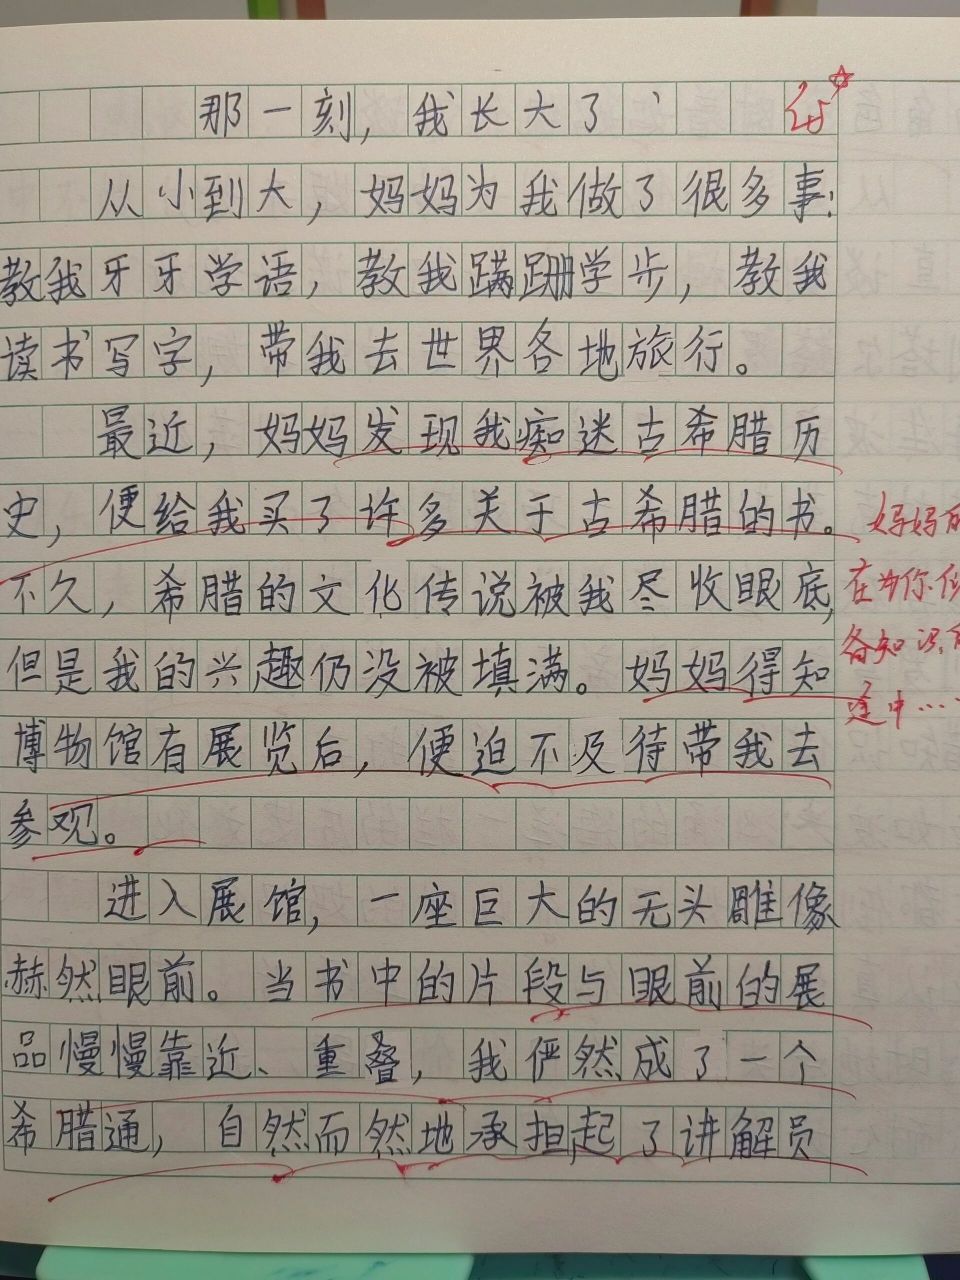 那一刻，我长大了
从小到大，妈妈为我做了很多事：
教我牙牙学语，教我蹒跚学步，教我
读书写字，带我去世界各地旅行。
最近，妈妈发现我痴迷古希腊历
史，便给我买了许多关于古希腊的书。
不久，希腊的文化传说被我尽收眼底，
但是我的兴趣仍没被填满。妈妈得知
博物馆有展览后，便迫不及待带我去
参观。
进入展馆，一座巨大的无头雕像
赫然眼前。当书中的片段与眼前的展
品慢慢靠近、重叠，我俨然成了一个
希腊通，自然而然地承担起了讲解员
妈妈
在为你
备知识
途中……